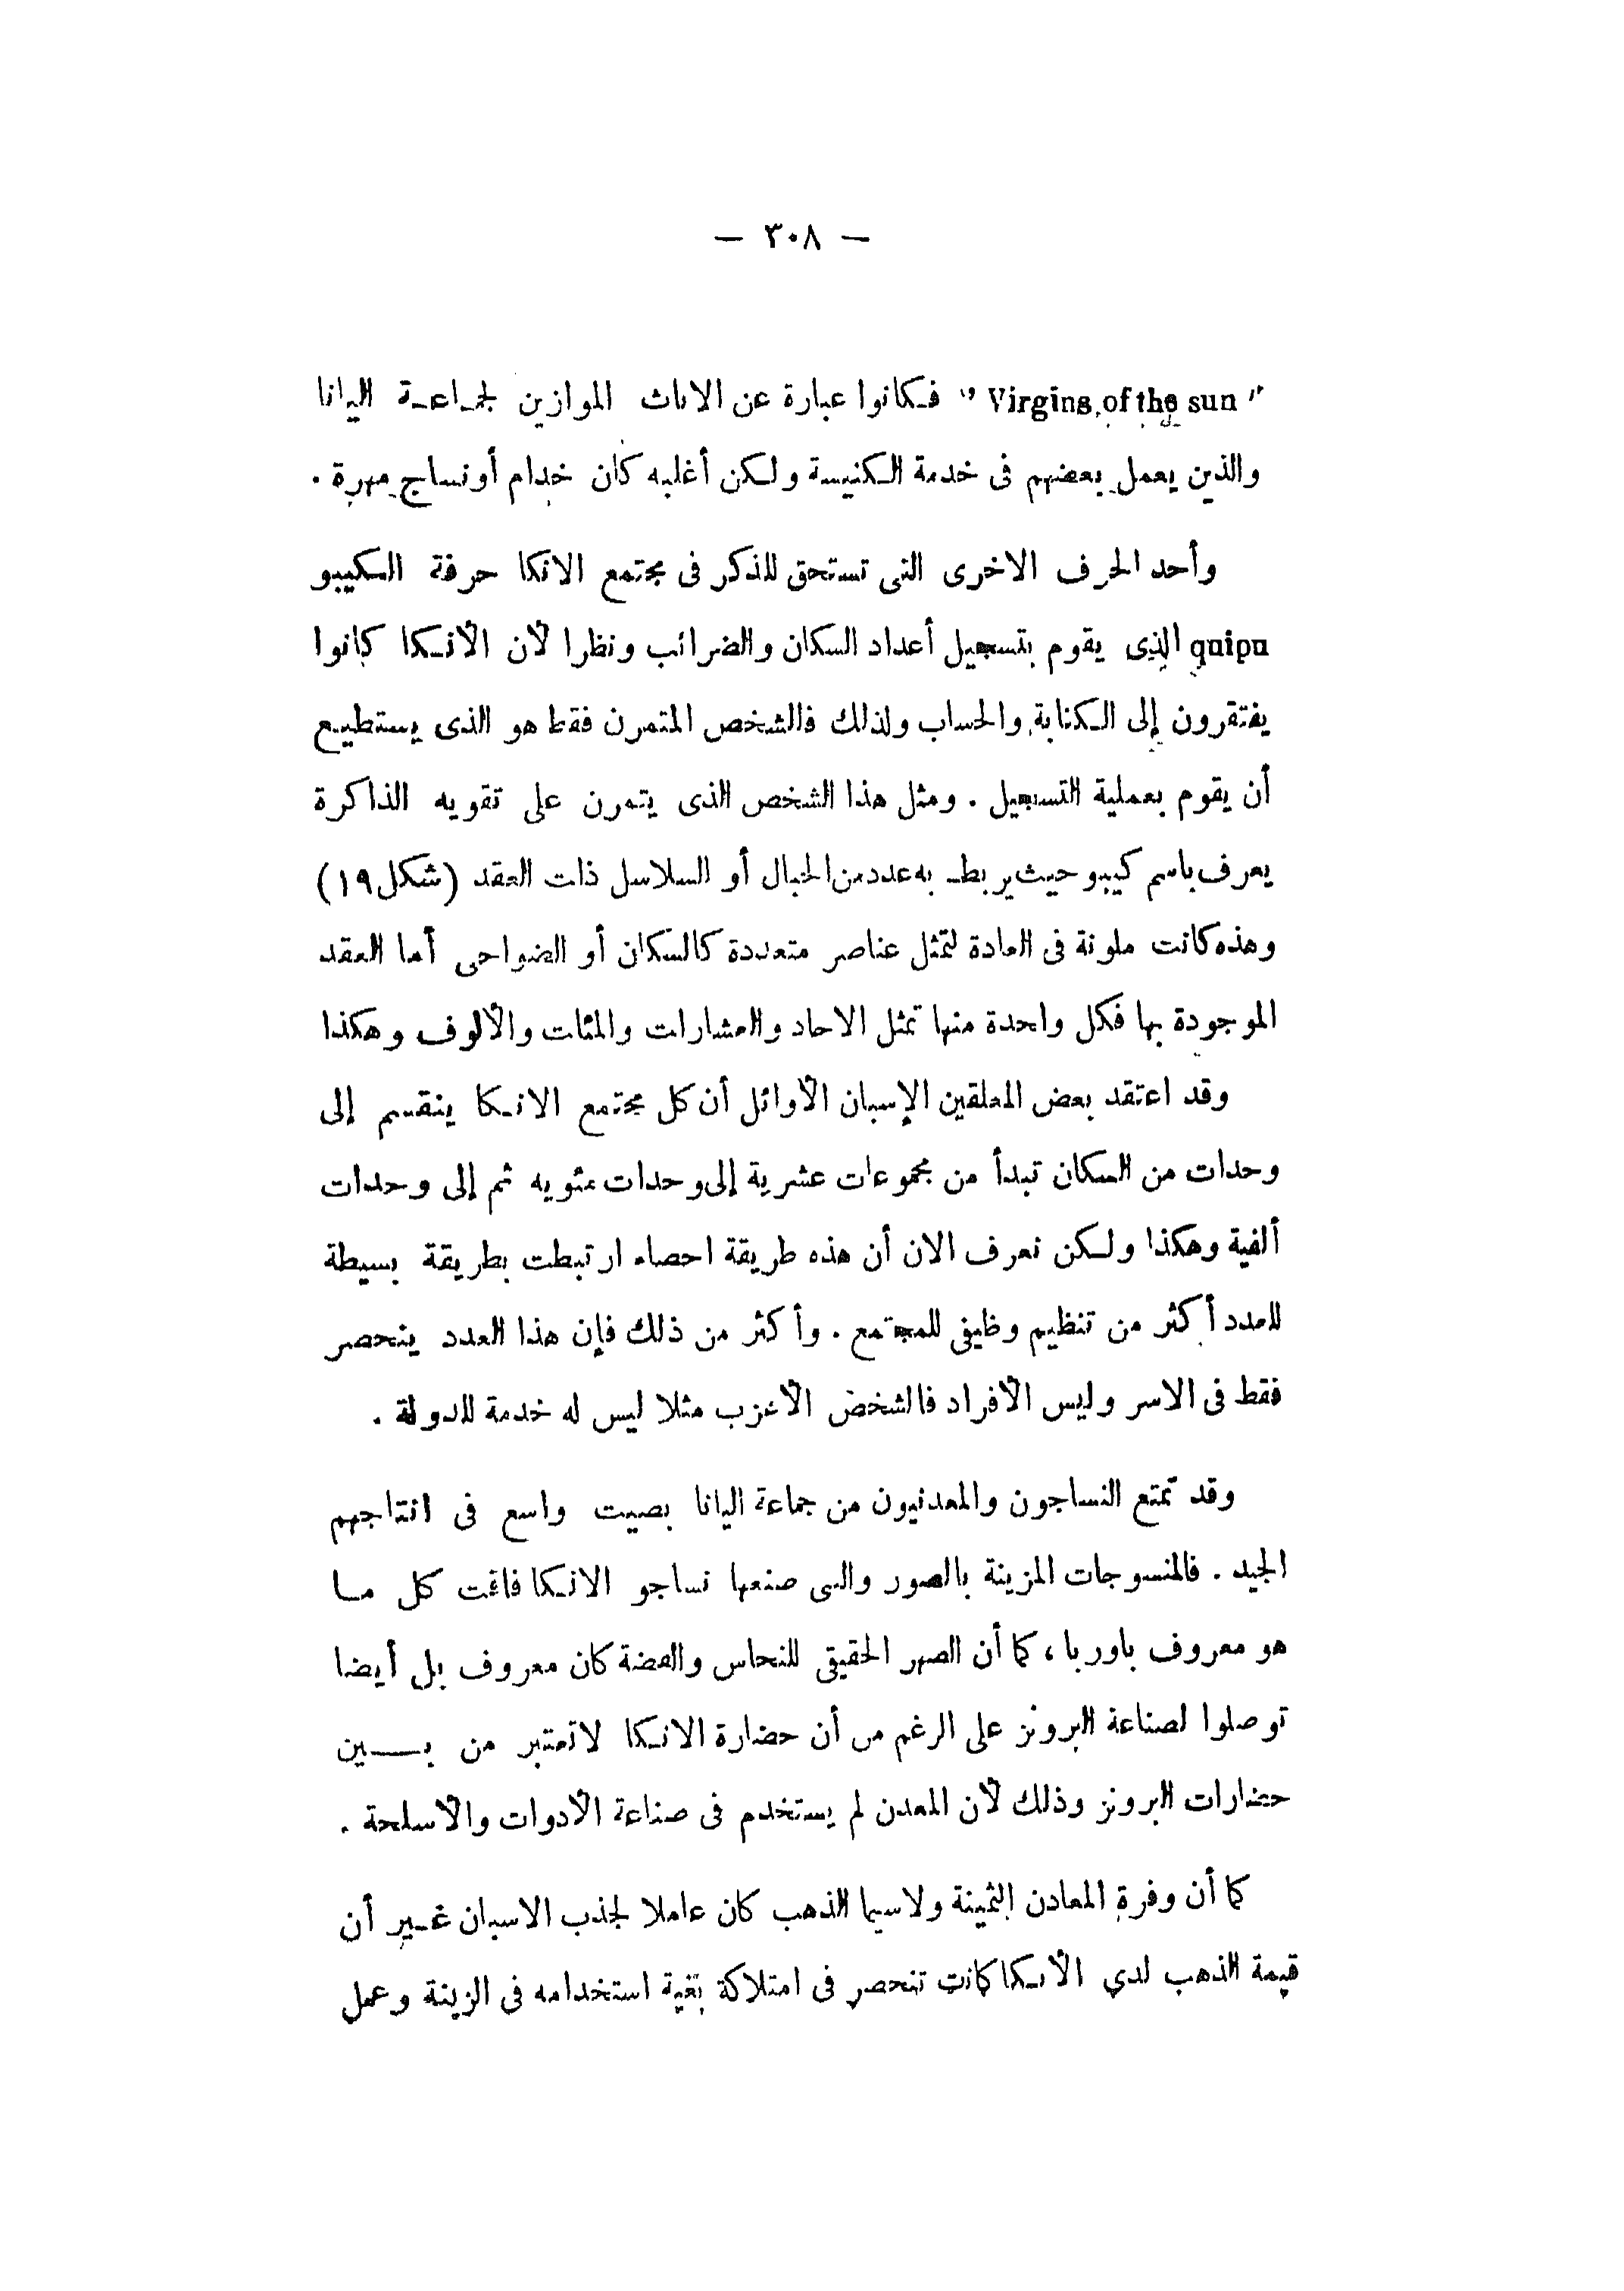 — ٣٠٨ —
" Virgins of the sun " فكانوا عبارة عن الاناث الموازين لجماعة اليانا
والذين يعمل بعضهم فى خدمة الكنيسة ولكن أغلبه كان خدام أونساج مهرة .
وأحد الحرف الاخرى التى تستحق للذكر فى مجتمع الانكا حرفة الكيبو
quipu الذى يقوم بتسجيل أعداد السكان والضرائب ونظرا لأن الأنكا كانوا
يفتقرون إلى الكتابة والحساب ولذلك فالشخص المتمرن فقط هو الذى يستطيع
أن يقوم بعملية التسجيل . ومثل هذا الشخص الذى يتمرن على تقويه الذاكرة
يعرف باسم كيبو حيث يربط به عدد من الحبال أو السلاسل ذات العقد (شكل ١٩)
وهذه كانت ملونة فى العادة لتمثل عناصر متعددة كالسكان أو الضواحى أما العقد
الموجودة بها فكل واحدة منها تمثل الاحاد والعشارات والمئات والألوف وهكذا
وقد اعتقد بعض المعلقين الإسبان الأوائل أن كل مجتمع الانكا ينقسم إلى
وحدات من السكان تبدأ من مجموعات عشرية إلى وحدات مئويه ثم إلى وحدات
ألفية وهكذا ولكن نعرف الان أن هذه طريقة احصاء ارتبطت بطريقة بسيطة
للعدد أكثر من تنظيم وظيفى للمجتمع . وأكثر من ذلك فإن هذا العدد ينحصر
فقط فى الاسر وليس الأفراد فالشخص الأعزب مثلا ليس له خدمة للدولة .
وقد تمتع النساجون والمعدنيون من جماعة اليانا بصيت واسع فى انتاجهم
الجيد . فالمنسوجات المزينة بالصور والتى صنعها نساجو الانكا فاقت كل ما
هو معروف باوربا ، كما أن الصهر الحقيقى للنحاس والفضة كان معروف بل أيضا
توصلوا لصناعة البرونز على الرغم من أن حضارة الانكا لاتعتبر من بين
حضارات البرونز وذلك لأن المعدن لم يستخدم فى صناعة الأدوات والأسلحة .
كما أن وفرة المعادن الثمينة ولاسيما الذهب كان عاملا لجذب الاسبان غير أن
قيمة الذهب لدي الأنكا كانت تنحصر فى امتلاكة بغية استخدامه فى الزينة وعمل